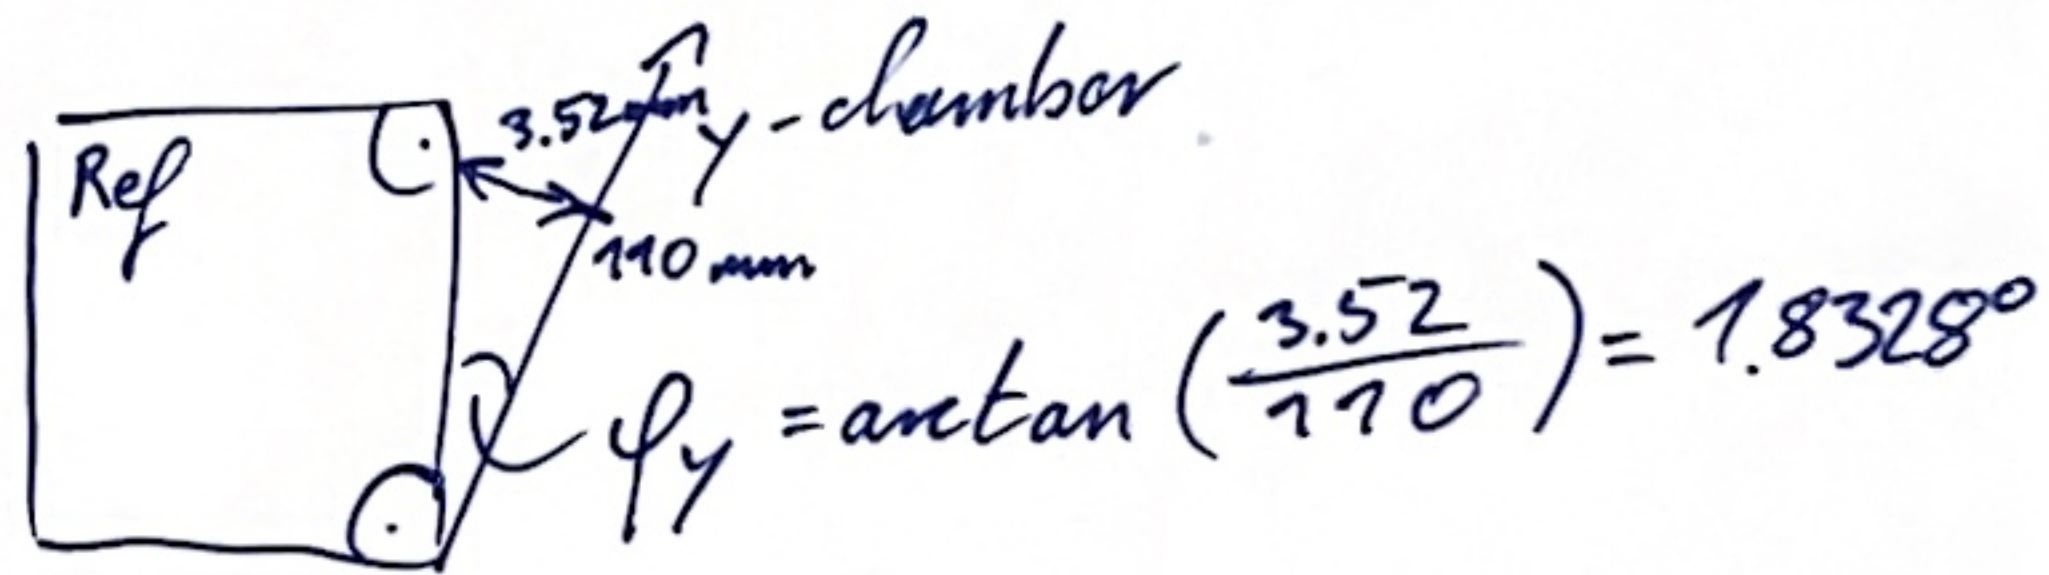 Ref
3.52mm
y-chamber
110mm
φy = arctan (3.52/110) = 1.8328°